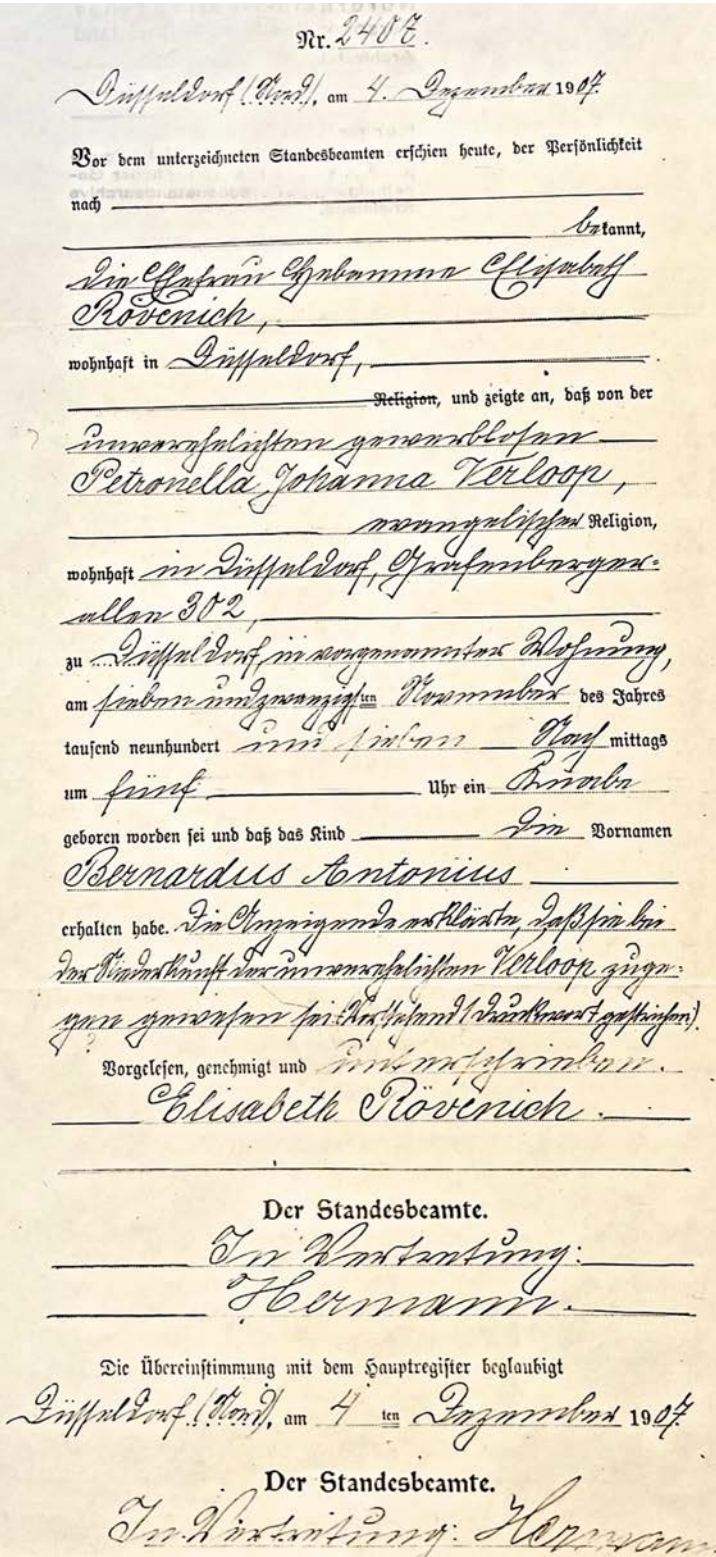 Nr. 2407.
Düsseldorf (Nord), am 4. Dezember 1907.
Vor dem unterzeichneten Standesbeamten erschien heute, der Persönlichkeit
nach
bekannt,
die Ehefrau Hebamme Elisabeth
Rövenich,
wohnhaft in Düsseldorf,
Religion, und zeigte an, daß von der
unverehelichten gewerblosen
Petronella Johanna Verloop,
evangelischer Religion,
wohnhaft in Düsseldorf, Grafenberger-
allee 302,
zu Düsseldorf, in vorgenannter Wohnung,
am sieben und zwanzigsten November des Jahres
tausend neunhundert und sieben Nach mittags
um fünf Uhr ein Knabe
geboren worden sei und daß das Kind die Vornamen
Bernardus Antonius
erhalten habe. Die Anzeigende erklärte, daß sie bei
der Niederkunft der unverehelichten Verloop zuge-
gen gewesen sei. (Vorstehend 1 Druckwort gestrichen).
Vorgelesen, genehmigt und unterschrieben.
Elisabeth Rövenich.
Der Standesbeamte.
In Vertretung:
Hermann.
Die Übereinstimmung mit dem Hauptregister beglaubigt
Düsseldorf (Nord), am 4 ten Dezember 1907.
Der Standesbeamte.
In Vertretung: Hermann